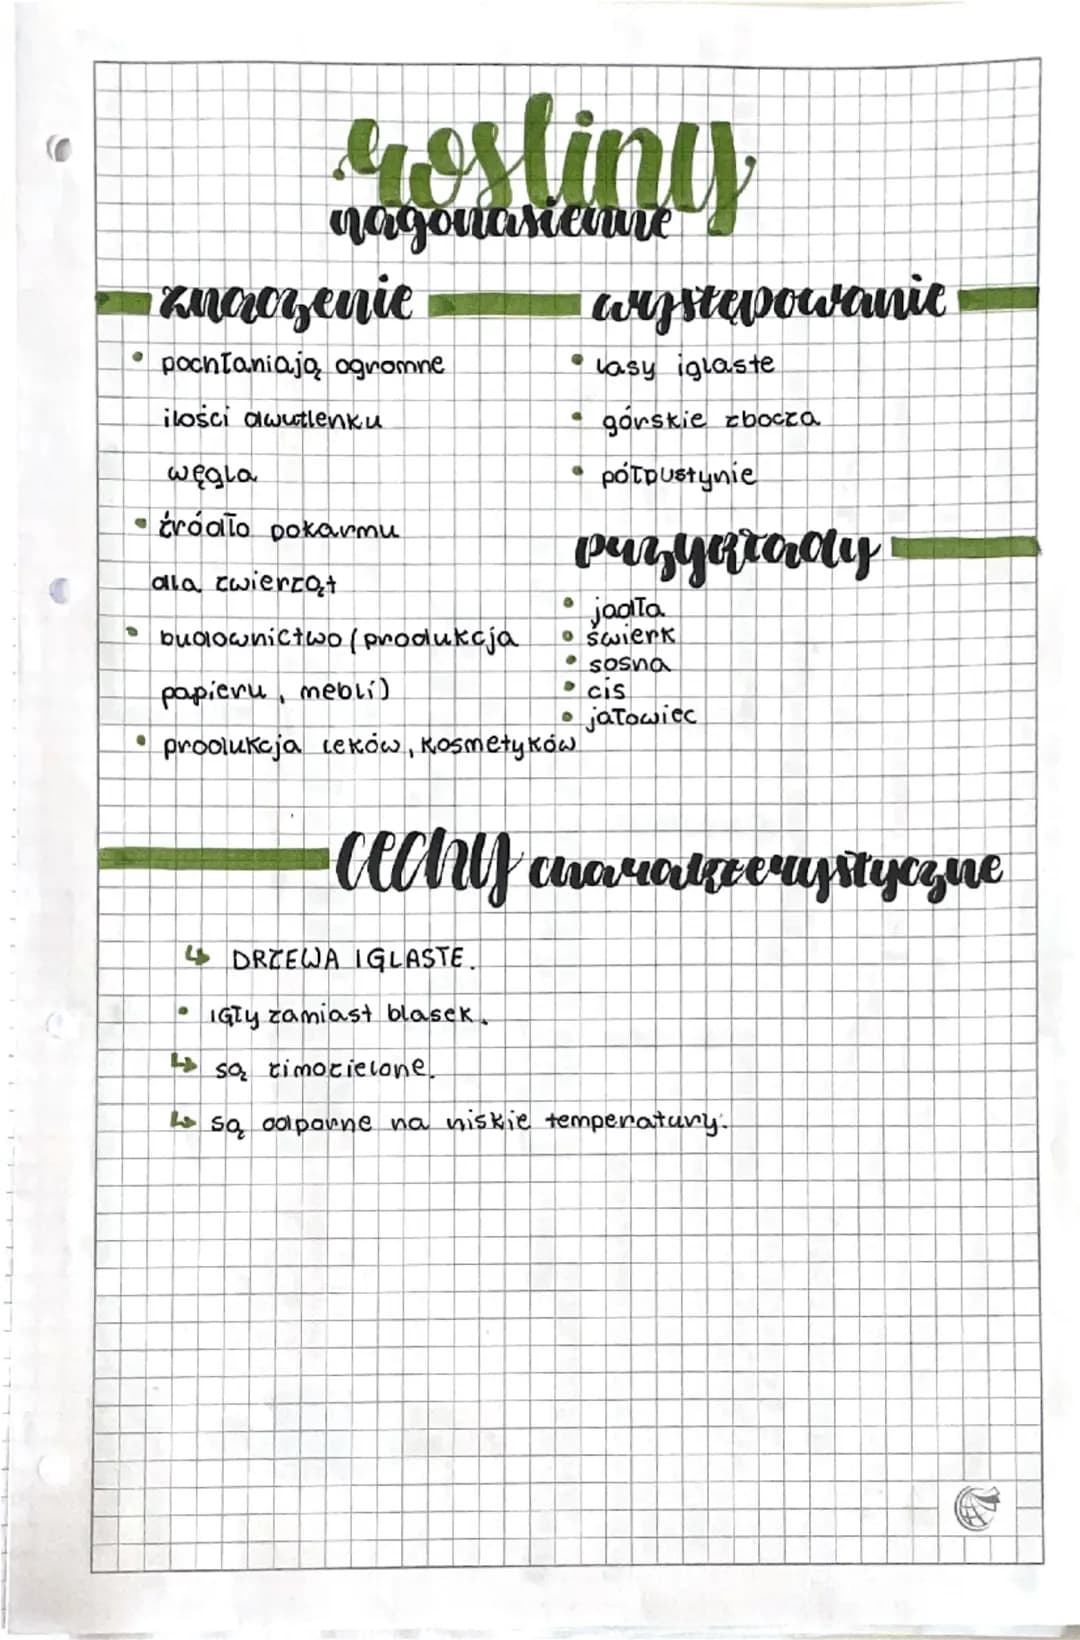 rośliny
nagonasienne
znaczenie
• pochłaniają ogromne
ilości dwutlenku
węgla
• źródło pokarmu
dla zwierząt
• budownictwo (produkcja
papieru, mebli)
• produkcja leków, kosmetyków
występowanie
• lasy iglaste
• górskie zbocza
• półpustynie
przykłady
• jodła
• świerk
• sosna
• cis
• jałowiec
cechy charakterystyczne
↳ DRZEWA IGLASTE.
• IGŁy zamiast blasek.
↳ są zimozielone.
↳ są odporne na niskie temperatury.